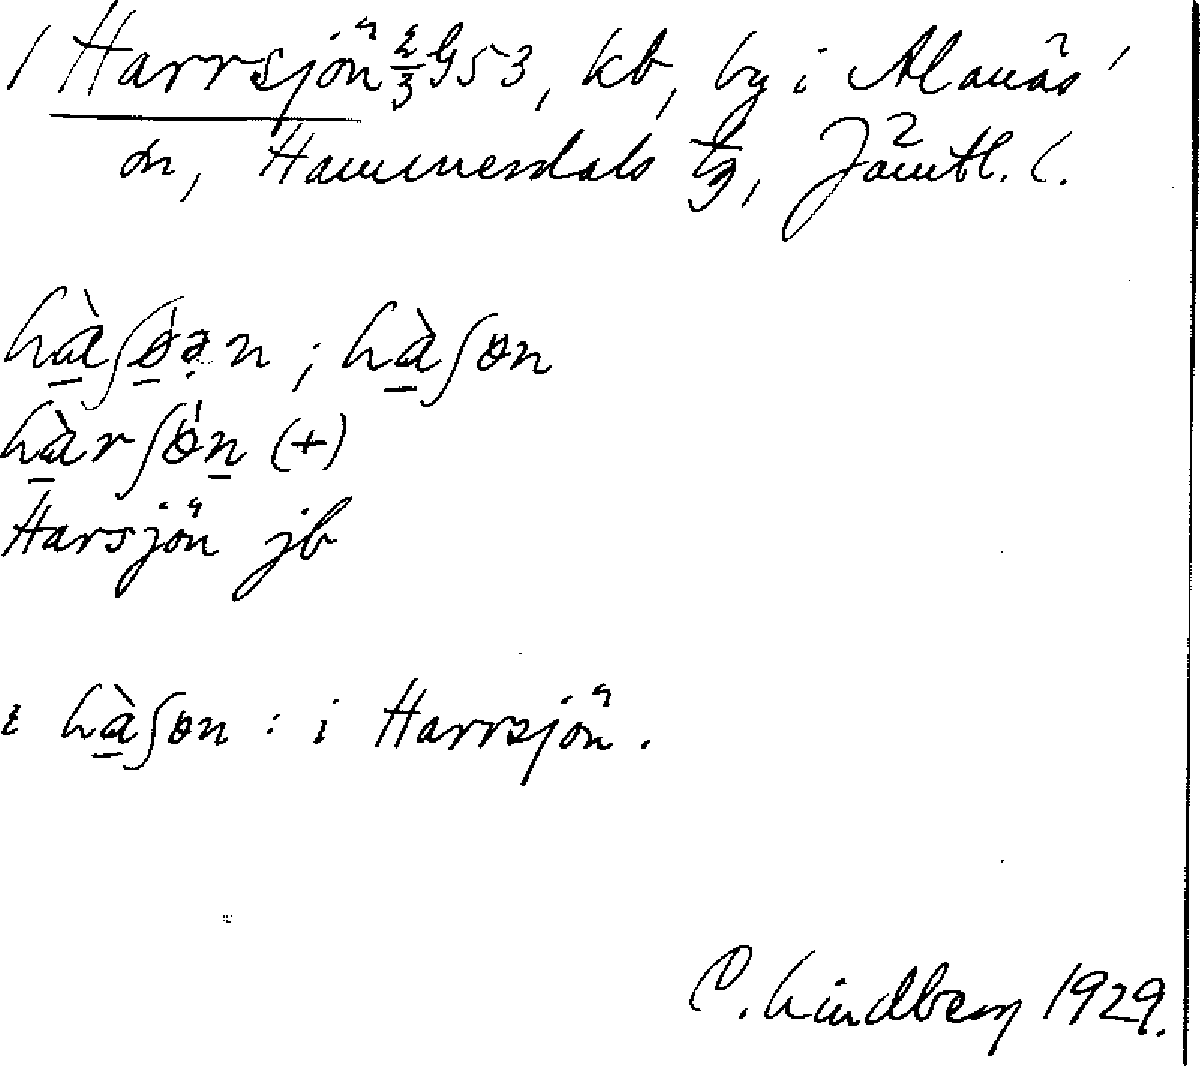 Harrsjön 2/3 G53, kb, by i Alanäs
sn, Hammerdals tg, Jämtl. l.
hàʃɵ́ən ; hàʃɵn
hàrʃɵ́n (+)
Harsjön jb
ɩ hàʃɵn : i Harrsjön.
C. Lindberg 1929.